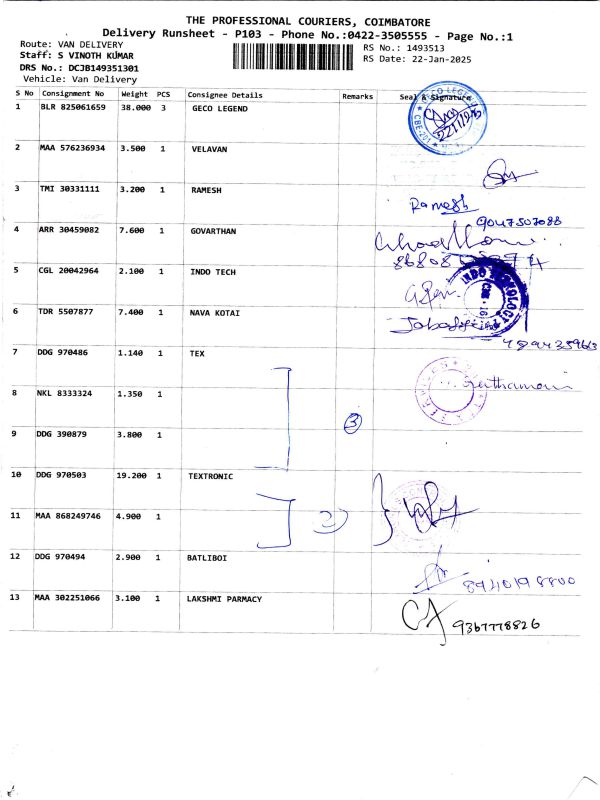 THE PROFESSIONAL COURIERS, COIMBATORE
Delivery Runsheet - P103 - Phone No.:0422-3505555 - Page No.:1
Route: VAN DELIVERY
RS No.: 1493513
Staff: S VINOTH KUMAR
RS Date: 22-Jan-2025
DRS No.: DCJB149351301
Vehicle: Van Delivery
S No Consignment No Weight PCS Consignee Details Remarks Seal & Signature
1 BLR 825061659 38.000 3 GECO LEGEND
2 MAA 576236934 3.500 1 VELAVAN
3 TMI 30331111 3.200 1 RAMESH
Ramesh
9047507088
4 ARR 30459082 7.600 1 GOVARTHAN
5 CGL 20042964 2.100 1 INDO TECH
6 TDR 5507877 7.400 1 NAVA KOTAI
7 DDG 970486 1.140 1 TEX
8 NKL 8333324 1.350 1
3
9 DDG 390879 3.800 1
10 DDG 970503 19.200 1 TEXTRONIC
11 MAA 868249746 4.900 1
2
12 DDG 970494 2.900 1 BATLIBOI
8940198800
13 MAA 302251066 3.100 1 LAKSHMI PARMACY
9367778826